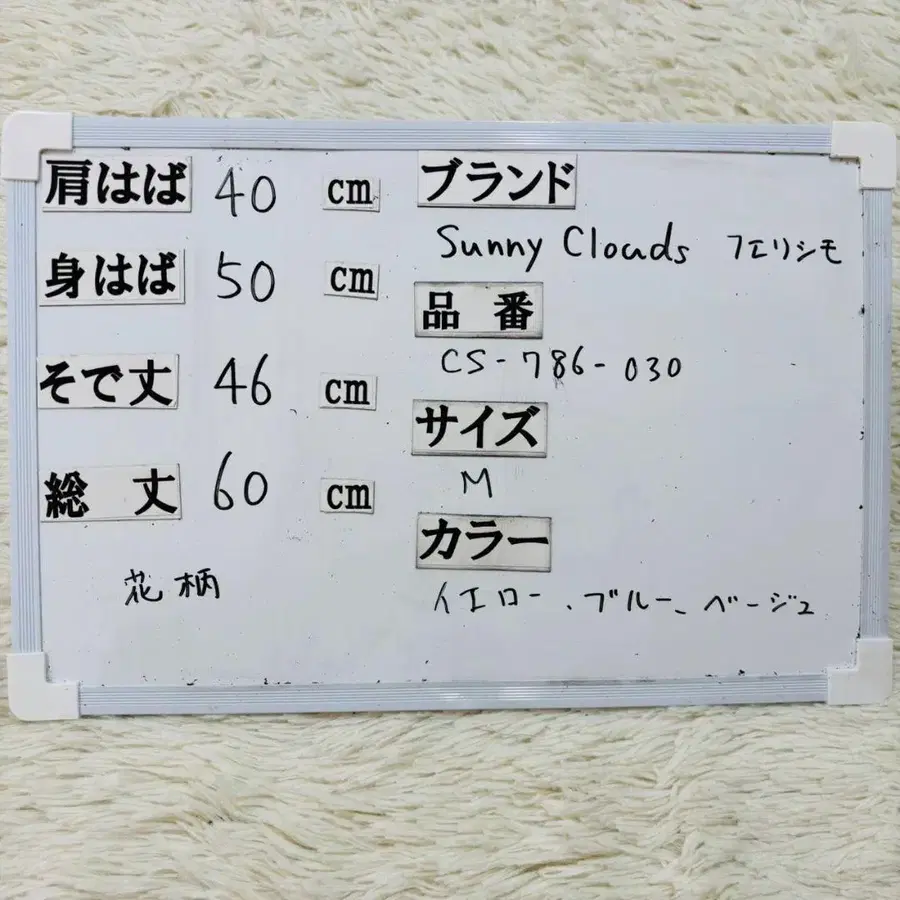 肩はば 40 cm
身はば 50 cm
そで丈 46 cm
総丈 60 cm
花柄
ブランド
Sunny Clouds フェリシモ
品番
CS-786-030
サイズ
M
カラー
イエロー、ブルー、ベージュ